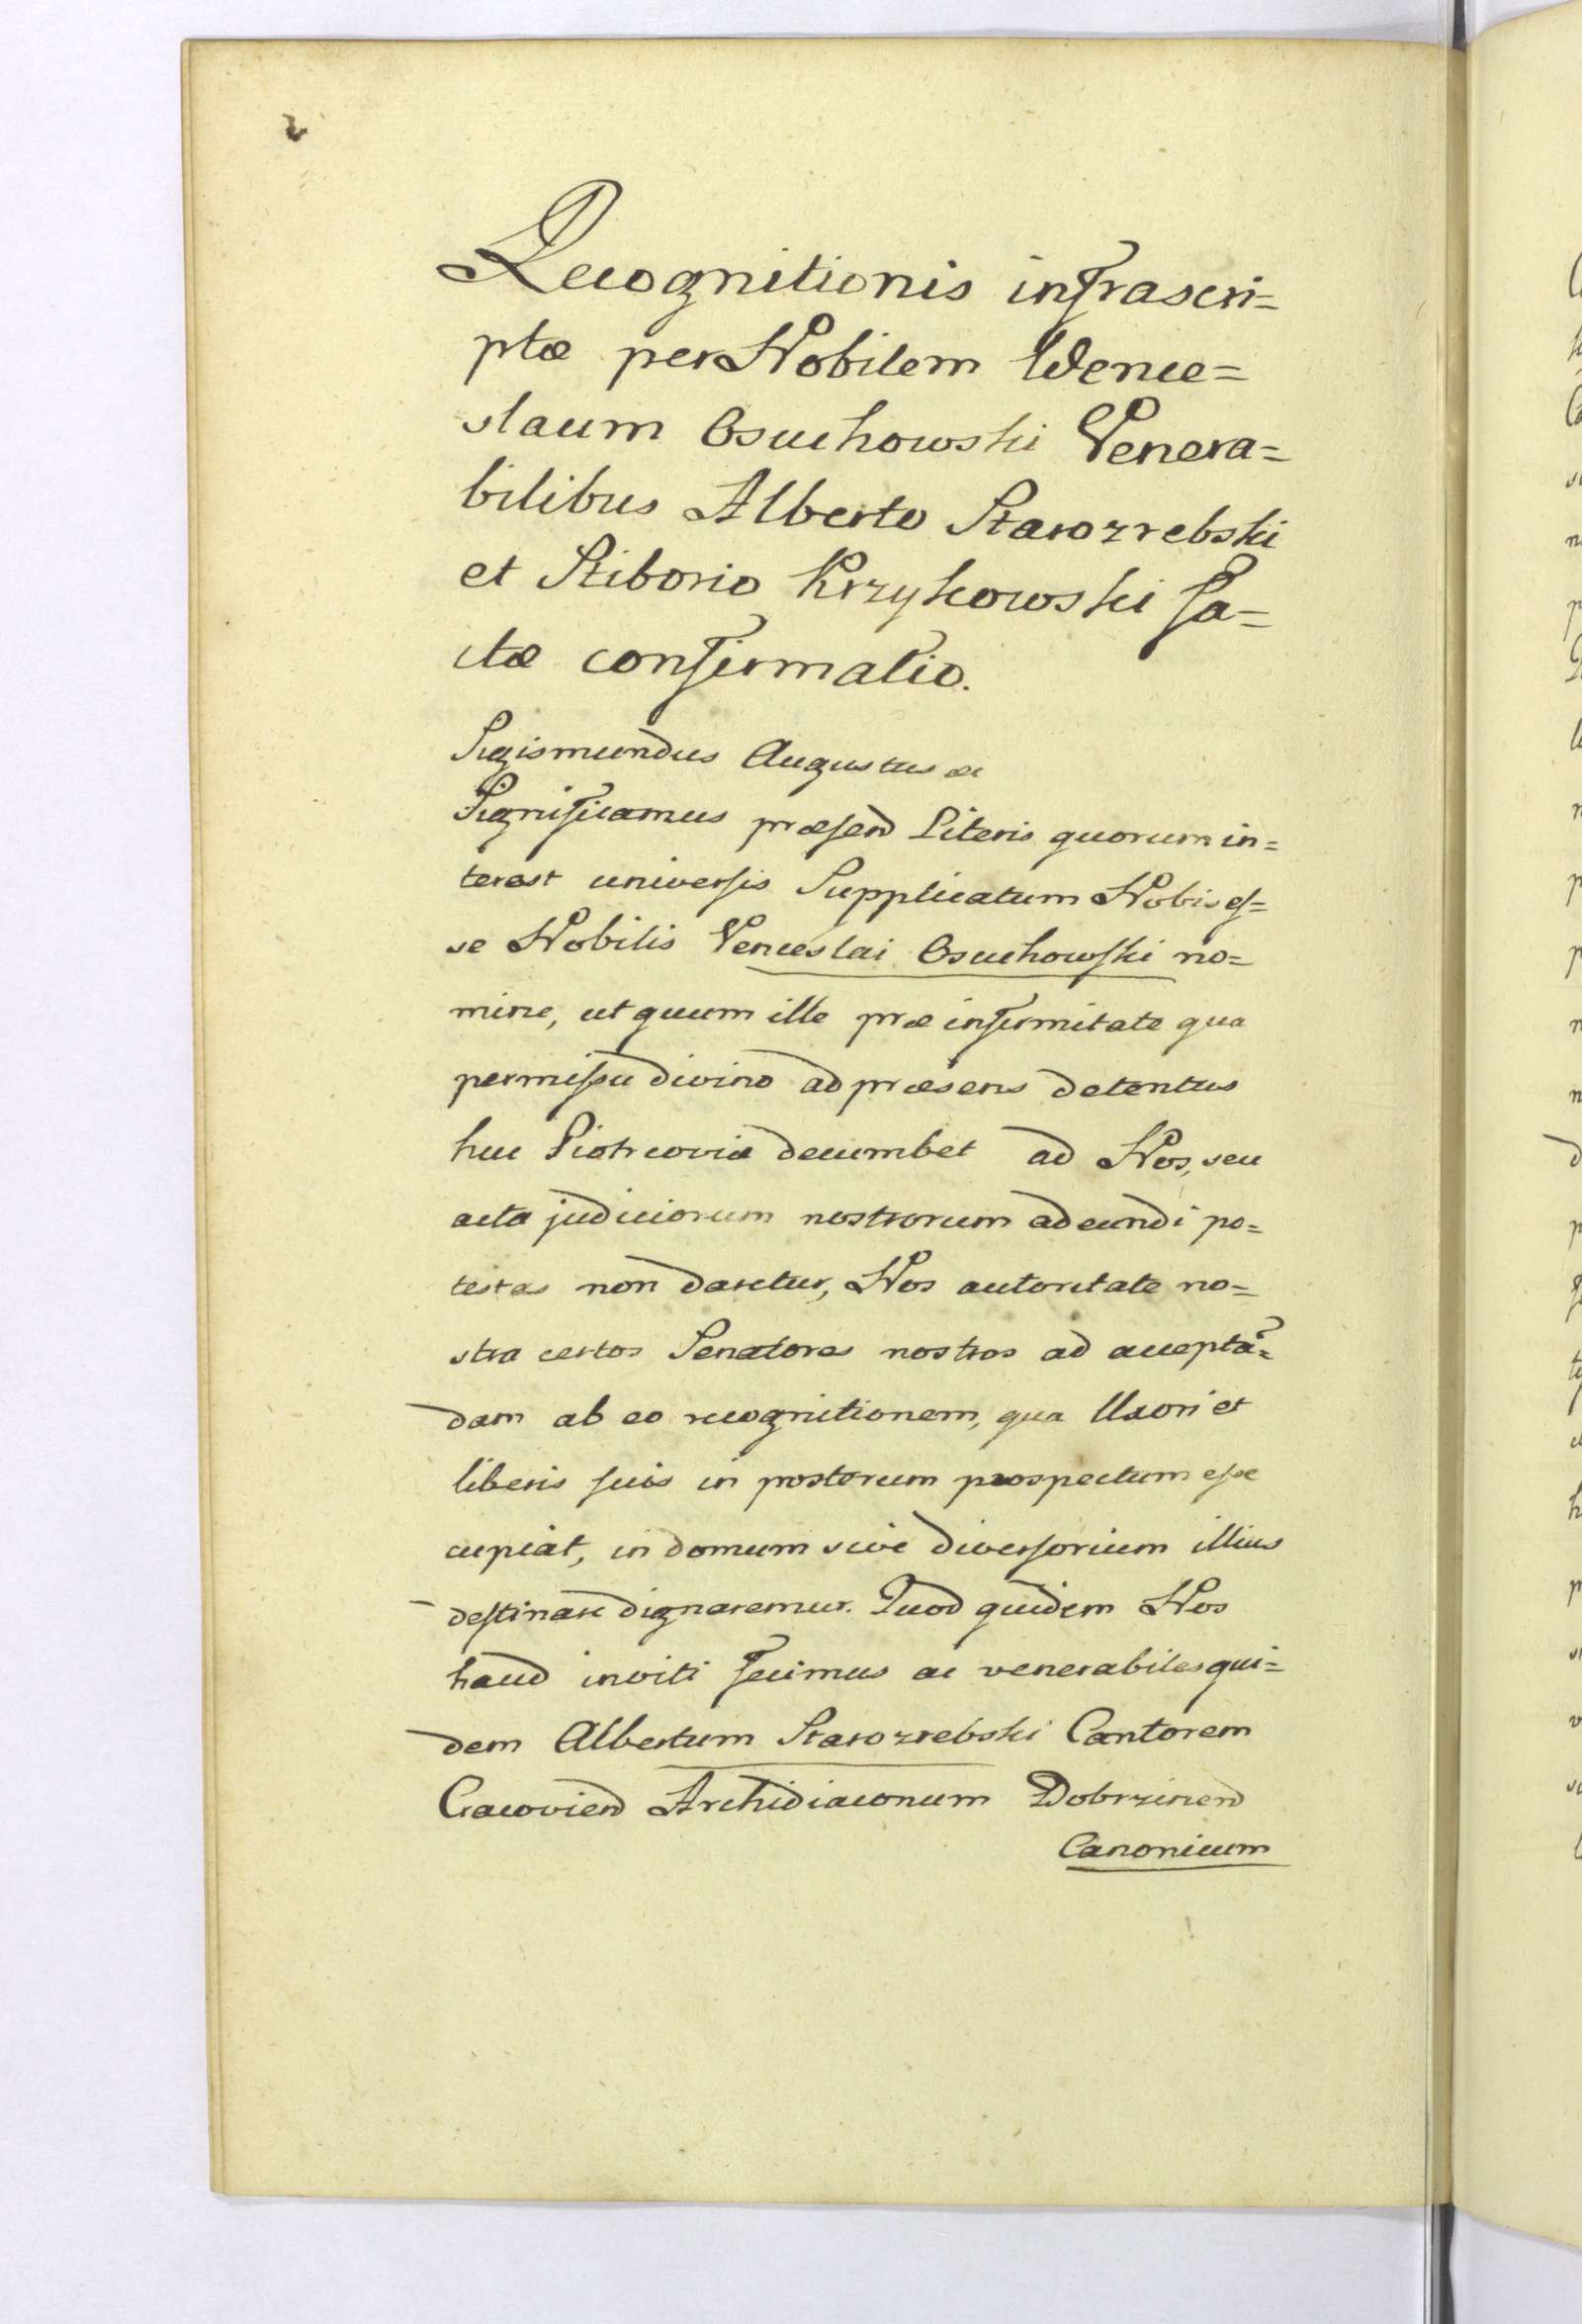 2
Recognitionis infrascri=
ptæ per Nobilem Wence=
slaum Osuchowski Venera=
bilibus Alberto Starozrebski
et Stiborio Krzykowski fa=
ctæ confirmatio.
Sigismundus Augustus &c
Significamus præsend Literis quorum in=
terest universis Supplicatum Nobis es=
se Nobilis Venceslai Osuchowski no=
mine, ut quum ille præ infirmitate qua
permissu divino ad præsens detentus
huc Piotrcoviæ decumbet ad Nos, seu
acta judiciorum nostrorum adeundi po=
testas non daretur, Nos autoritate no=
stra certos Senatores nostros ad acceptã=
dam ab eo recognitionem, qua Uxori et
liberis suis in posterum prospectum esse
cupiat, in domum sive diversorium illius
destinare dignaremur. Quod quidem Nos
haud inviti fecimus ac venerabiles qui=
dem Albertum Starozrebski Cantorem
Cracoviend Archidiaconum Dobrzinend
Canonicum